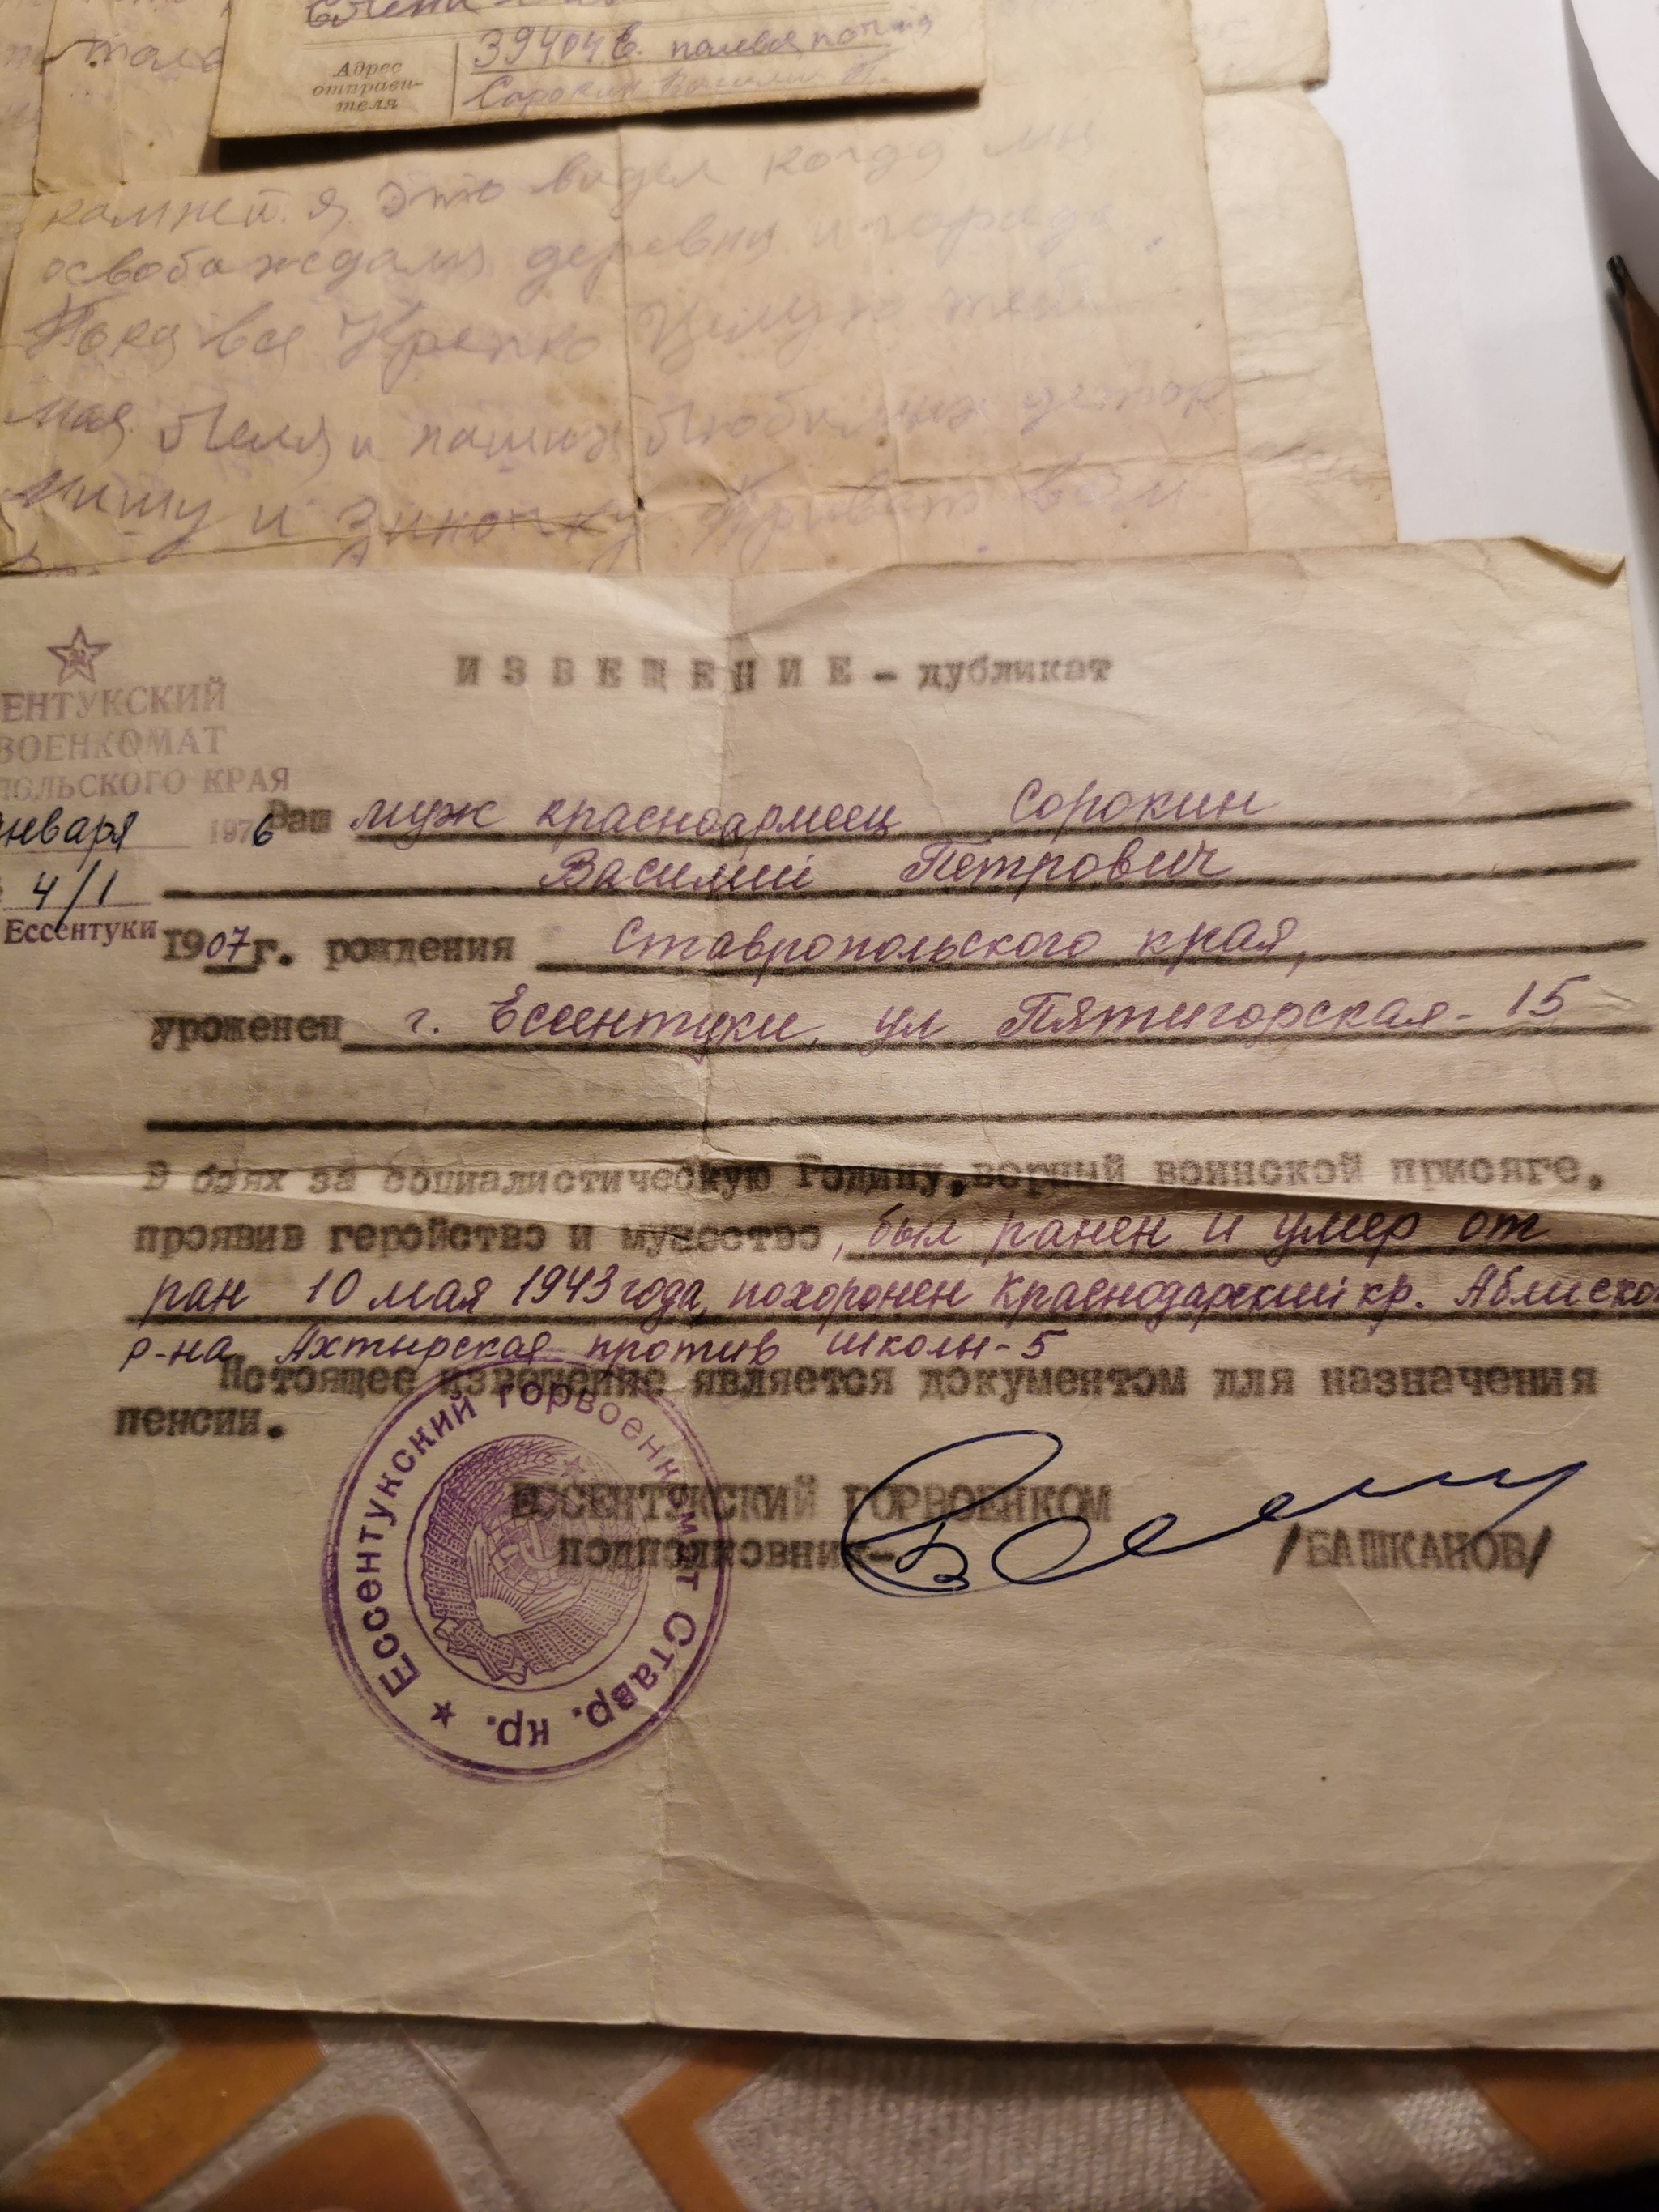 Адрес
отправи-
теля
39404 Б. полевая почта
Сорокин Василий П.
камней. я это видел когда мы
освобождали деревни и города
Пока все Крепко Целую тебя
мая Леля и наших Любимых деток
Мишу и Зиночку Привет вам
ЕНТУКСКИЙ
ВОЕНКОМАТ
ПОЛЬСКОГО КРАЯ
нваря 1976
4/1
Ессентуки
ИЗВЕЩЕНИЕ - дубликат
Ваш муж красноармеец Сорокин
Василий Петрович
1907г. рождения Ставропольского края,
уроженец г. Ессентуки, ул Пятигорская - 15
В боях за социалистическую Родину, верный воинской присяге,
проявив геройство и мужество, был ранен и умер от
ран 10 мая 1943 года, похоронен Краснодарский кр. Аблиско
р-на Ахтырская против школы-5
Настоящее извещение является документом для назначения
пенсии.
ЕССЕНТУКСКИЙ ГОРВОЕНКОМ
подполковник- /БАШКАНОВ/
Ессентукский горвоенкомат Ставр. кр. ★